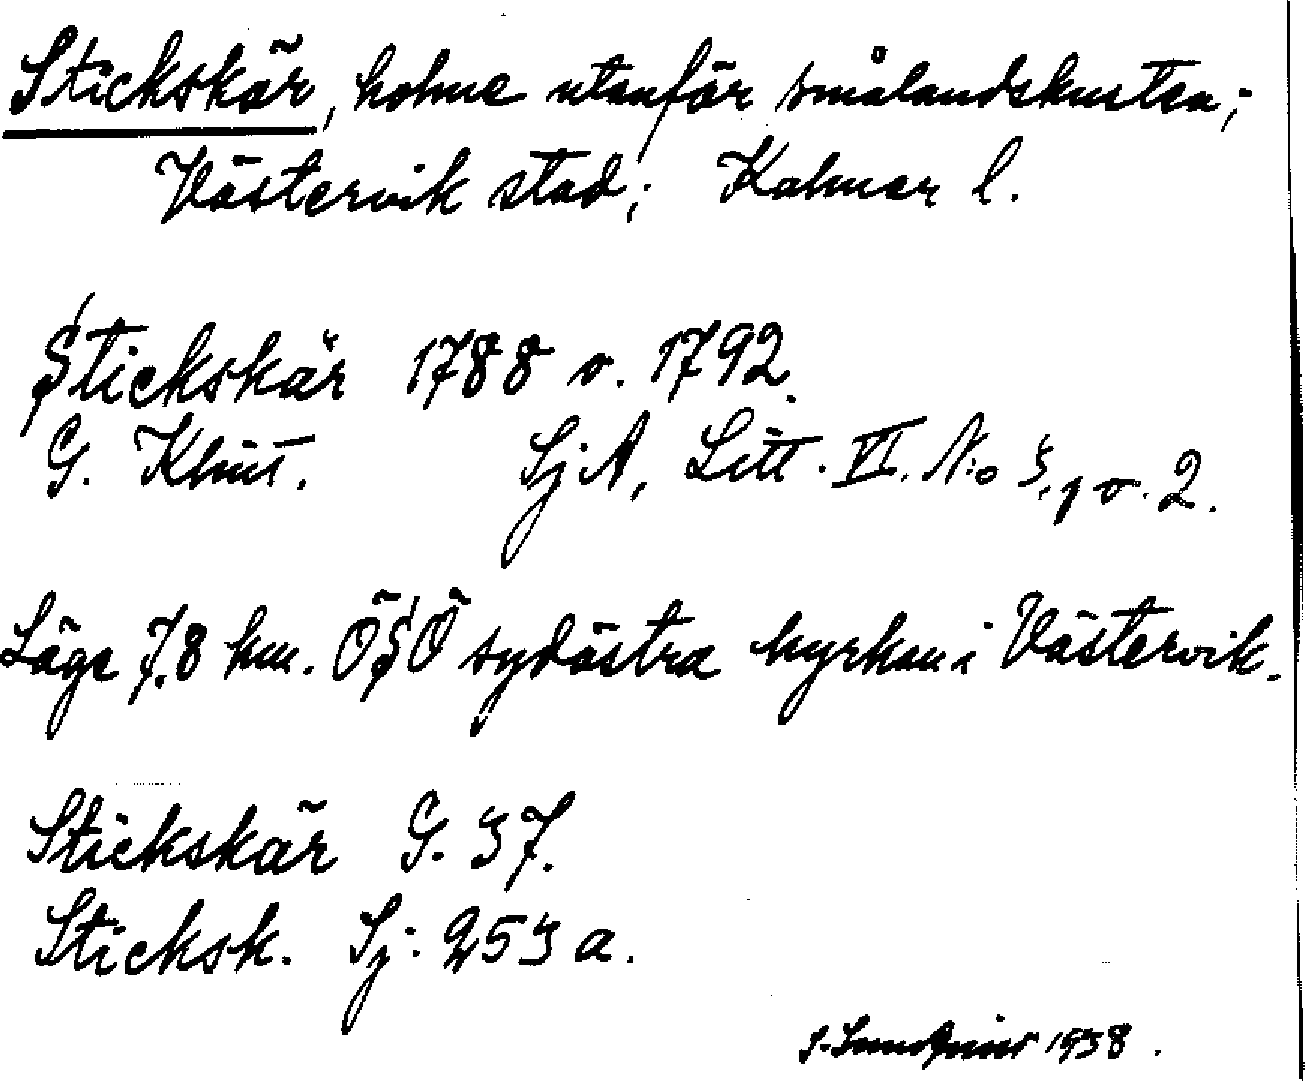 Stickskär, holme utanför smålandskusten;
Västervik stad; Kalmar l.
Stickskär 1788 o. 1792.
G. Klint. SjA, Litt. VI. N:o 3, 1 o. 2.
Läge 7.8 km. ÖSÖ sydöstra kyrkan i Västervik.
Stickskär G. 37.
Sticksk. Sj: 253 a.
1938.